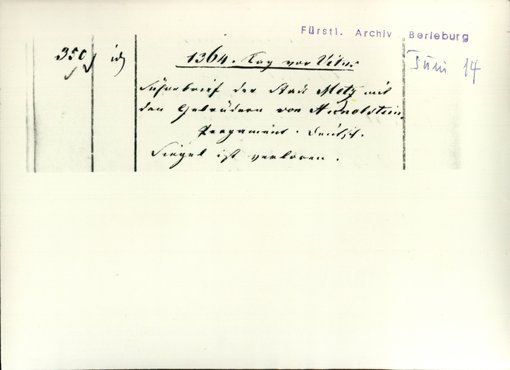 Fürstl. Archiv Berleburg
350 id
1364. Tag vor Vitus.
Juni 14
Sühnebrief der Stadt Metz mit
den Gebrüdern von
Pergament. Deutsch.
Siegel ist verloren.